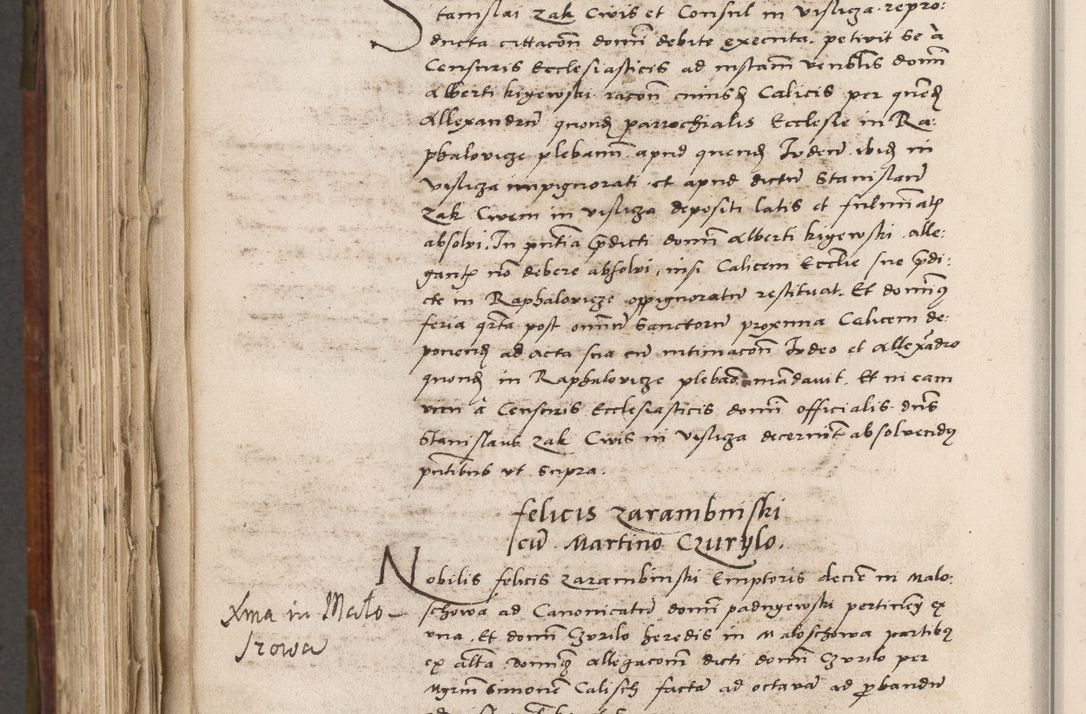 Stanislai Zak Civis et Consul in visliza repro:
ducta cittacon domi debite executa. petivit se à
Censuris Ecclesiasticis ad instam venblis domi
Alberti kigewski racon cuiusd Calicis per quend
Allexandru quond parrochialis Ecclesie in Ra:
phalovicze plebanu. apud quend Judeu ibid in
visliza impignorati et apud dictu Stanislau
Zak Civem in visliza depositi latis et fulminatis
absolvi. In pntia pdicti domi Alberti kigewski alle:
gantis no debere absolvi, nisi Calicem Ecclie sue pdi:
cte in Raphalovicze oppignoratu restituat. Et dominus
feria qrta post omniu Sanctoru proxima Calicem de:
ponend ad acta sua cu intimacon Judeo et Allexandro
quond in Raphalovicze plebano mandavit. Et in eam
vim à Censuris Ecclesiasticis domi officialis dnus
Stanislaus Zak Civis in visliza decernit absolvendus
pntibus ut supra.
felicis zarambinski
cu Martino Czurylo.
Nobilis felicis zarambinski Emptoris decie in Malo:
schowa ad Canonicatu domi padnyewski pertinen ex
una. Et domi Czurilo heredis in Maloschowa partibus
ex alta dominus allegacom dicti domi Czurilo per
Mgrm Simonem Calisch facta ad octava ad probandu
Xma in Malo-
szowa